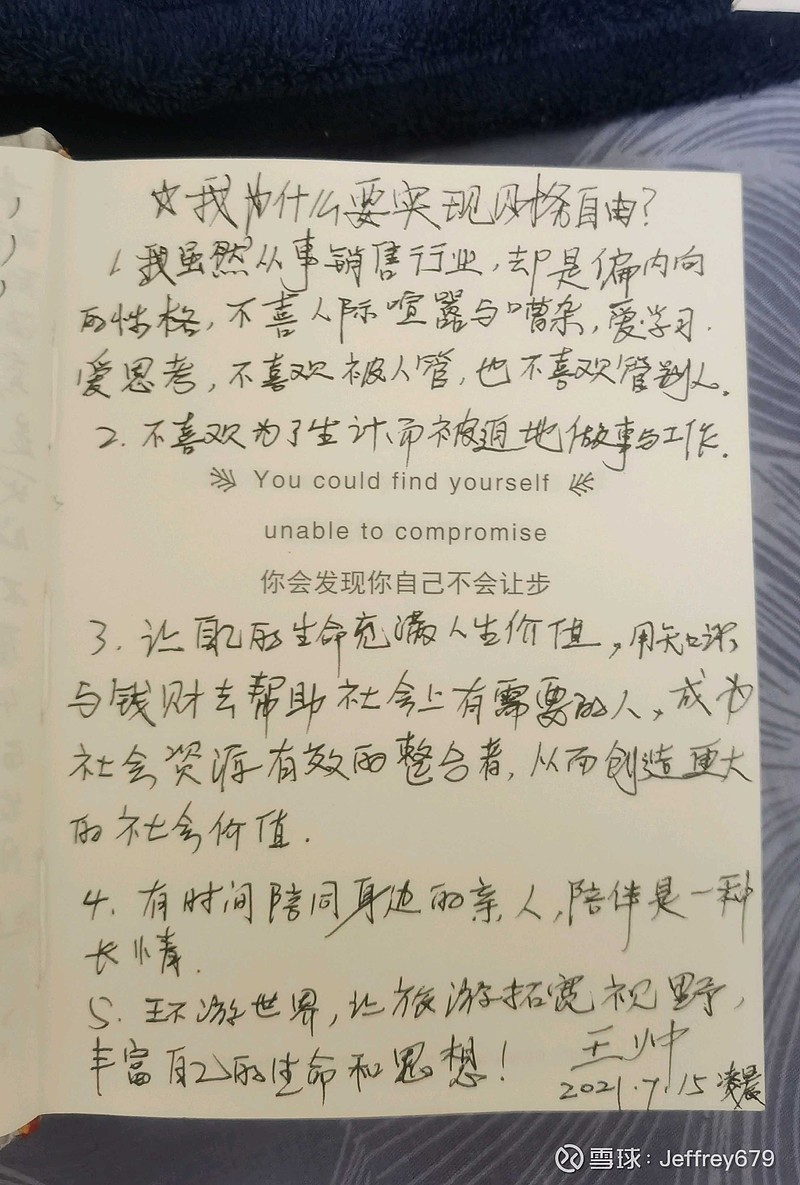 ☆我为什么要实现财务自由?
1.我虽然从事销售行业,却是偏内向
的性格,不喜人际喧嚣与嘈杂,爱学习.
爱思考,不喜欢被人管,也不喜欢管别人.
2.不喜欢为了生计而被迫地做事与工作.
You could find yourself
unable to compromise
你会发现你自己不会让步
3.让自己的生命充满人生价值,用知识
与钱财去帮助社会上有需要的人,成为
社会资源有效的整合者,从而创造更大
的社会价值.
4.有时间陪同身边的亲人,陪伴是一种
长情.
5.环游世界,让旅游拓宽视野,
丰富自己的生命和思想!
王帅
2021.7.15凌晨
雪球:Jeffrey679